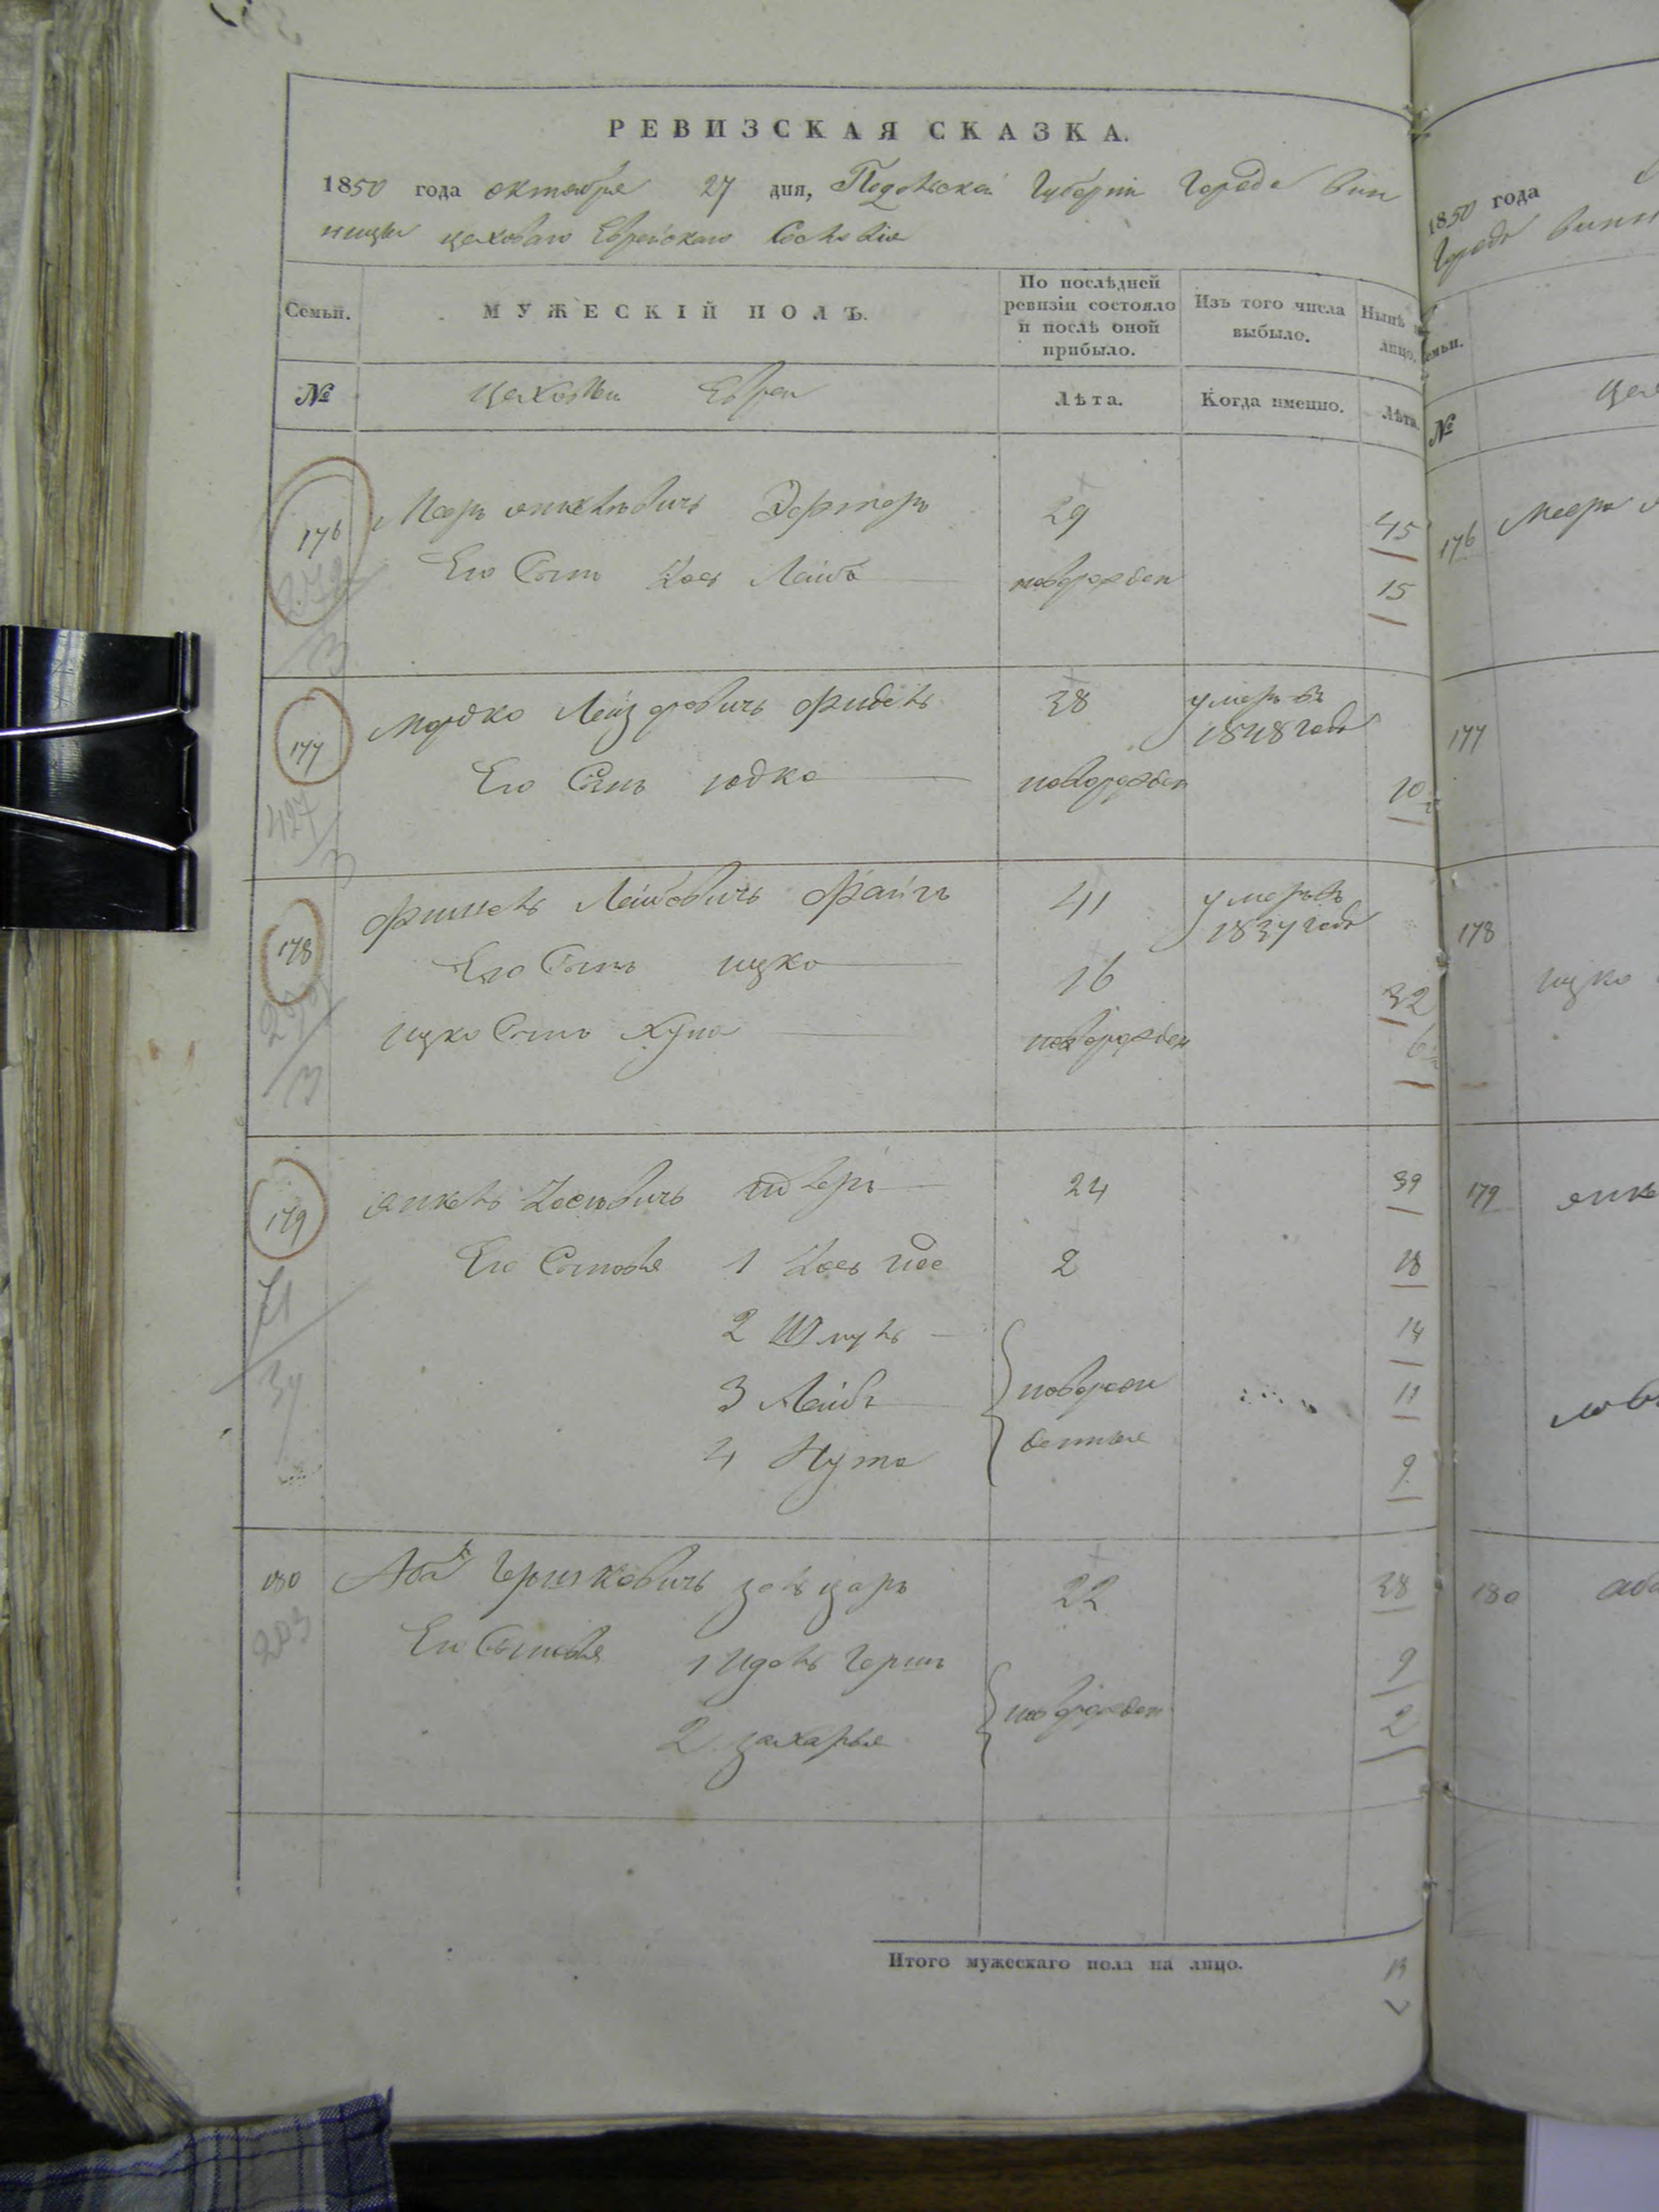 РЕВИЗСКАЯ СКАЗКА.
1850 года октября 27 дня, Подольской Губерніи Города Вин
ницы цеховаго Еврейскаго Сословія
Семьи.
МУЖЕСКІЙ ПОЛЪ.
По послѣдней ревизіи состояло и послѣ оной прибыло.
Изъ того числа выбыло.
Нынѣ лицо.
№
Цеховые Евреи
Лѣта.
Когда именно.
Лѣта.
176 Мееръ Янкелевичъ 29 45
Его Сынъ Іось Лейба новорожден 15
177 Мордко Лейзеровичъ Фидель 38 умеръ въ 1848 годе
Его Сынъ Юдко новорожден 10
427
178 Фишель Лейбовичъ Файнъ 41 умеръ въ 1837 годе
Его Сынъ Ицко 16 32
Ицко Сынъ Хуна новорожден 6
179 Янкель Іосіовичъ 24 39
Его Сыновья 1 Іось 2 18
2 Шмуль 14
3 Лейба новорож 11
4 Нута денные 9
71
37
180 Аба Гершковичъ зальцаръ 22 38
203
Его Сыновья 1 Идель Гершъ новорожден 9
2 Захарья 2
Итого мужескаго пола на лицо. 13
1850 года
Города Винн
№
176 Мееръ
177
178
Ицко
179 Янке
180 аба